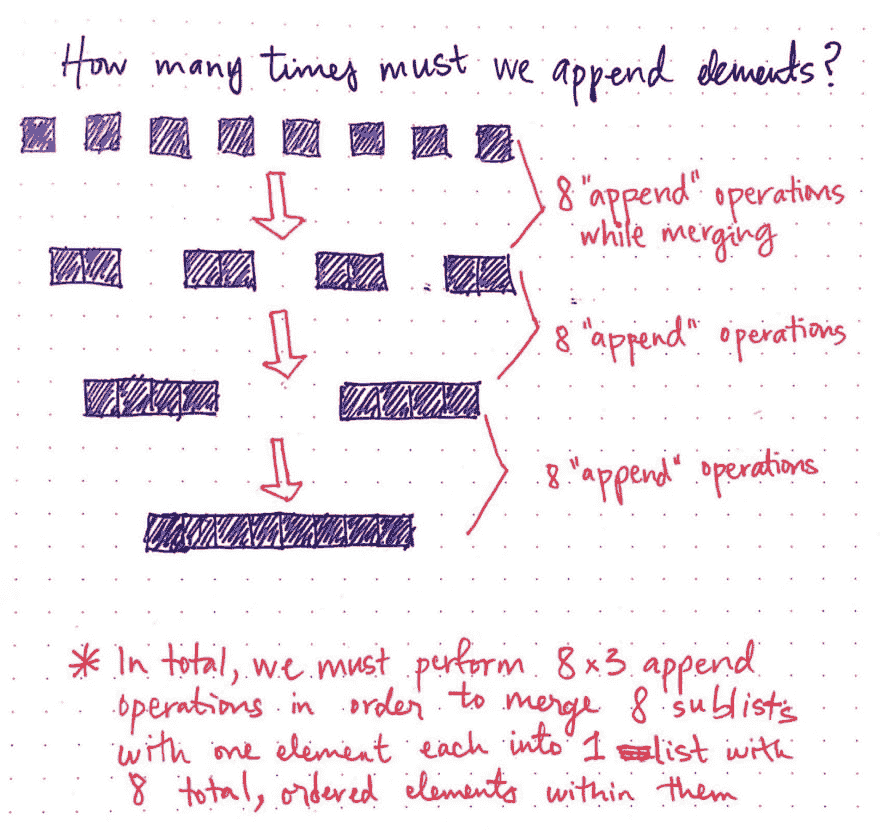 How many times must we append elements?
8 "append" operations
while merging
8 "append" operations
8 "append" operations
* In total, we must perform 8x3 append
operations in order to merge 8 sublists
with one element each into 1 list with
8 total, ordered elements within them